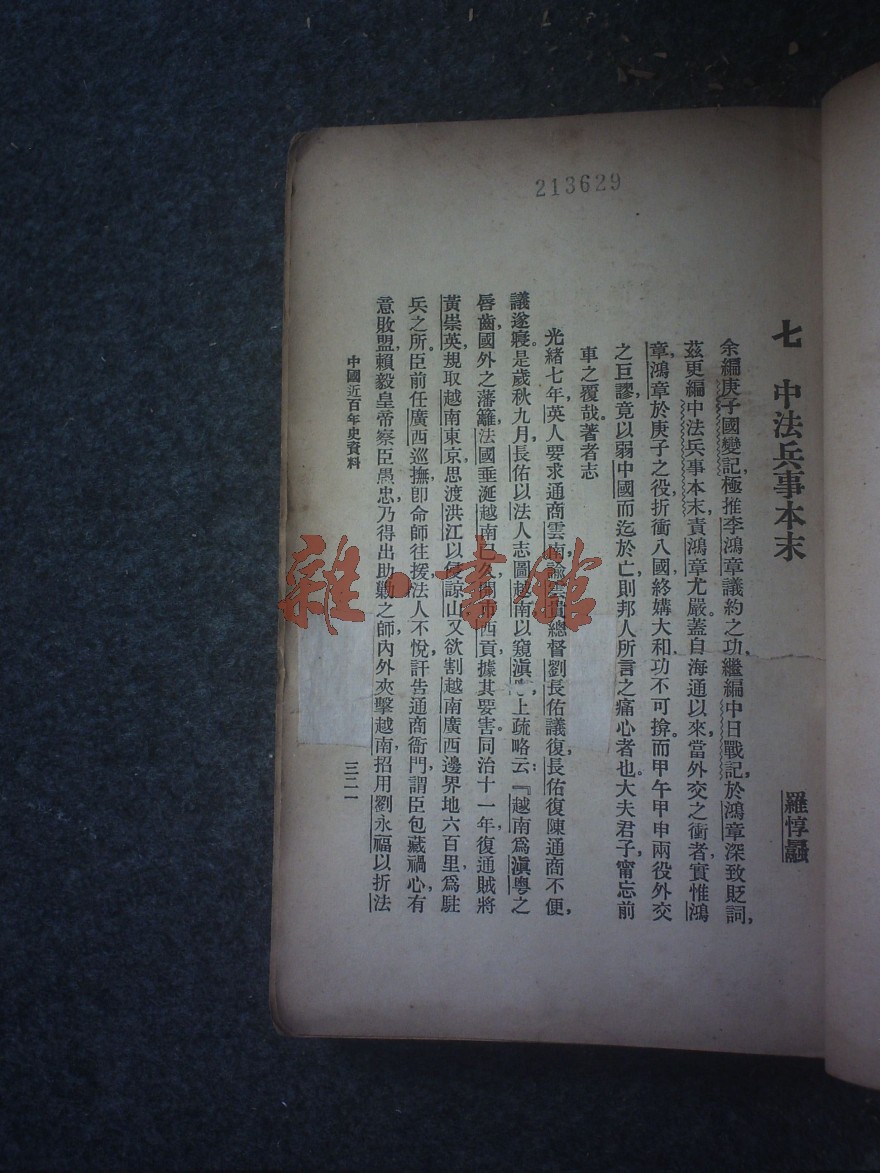 213629
七 中法兵事本末
羅惇曧
余編庚子國變記,極推李鴻章議約之功,繼編中日戰記,於鴻章深致貶詞,
茲更編中法兵事本末,責鴻章尤嚴。蓋自海通以來,當外交之衝者,實惟鴻
章,鴻章於庚子之役,折衝八國,終媾大和,功不可揜。而甲午甲申兩役,外交
之巨謬,竟以弱中國而迄於亡,則邦人所言之痛心者也。大夫君子,甯忘前
車之覆哉。著者志
光緒七年,英人要求通商雲南,諭雲貴總督劉長佑議復,長佑復陳通商不便,
議遂寢。是歲秋九月,長佑以法人志圖越南,以窺滇,上疏略云:『越南爲滇粵之
唇齒,國外之藩籬,法國垂涎越南已久,開市西貢,據其要害。同治十一年,復通賊將
黃崇英,規取越南東京,思渡洪江以侵諒山,又欲割越南廣西邊界地六百里,爲駐
兵之所。臣前任廣西巡撫,卽命師往援,法人不悅,訐告通商衙門,謂臣包藏禍心,有
意敗盟,賴毅皇帝察臣愚忠,乃得出助勦之師,內外夾擊,越南招用劉永福,以折法
中國近百年史資料
三二一
雜·書館